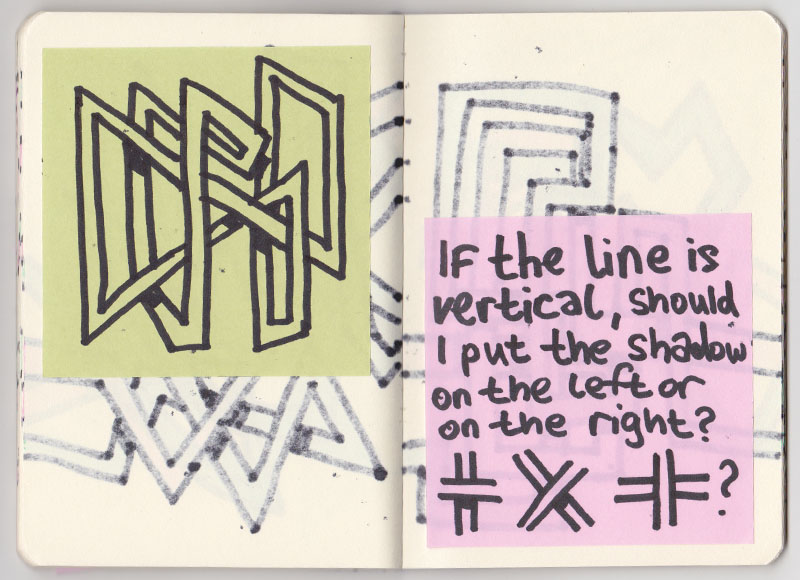 IF the line is
vertical, should
I put the shadow
on the left or
on the right?
?